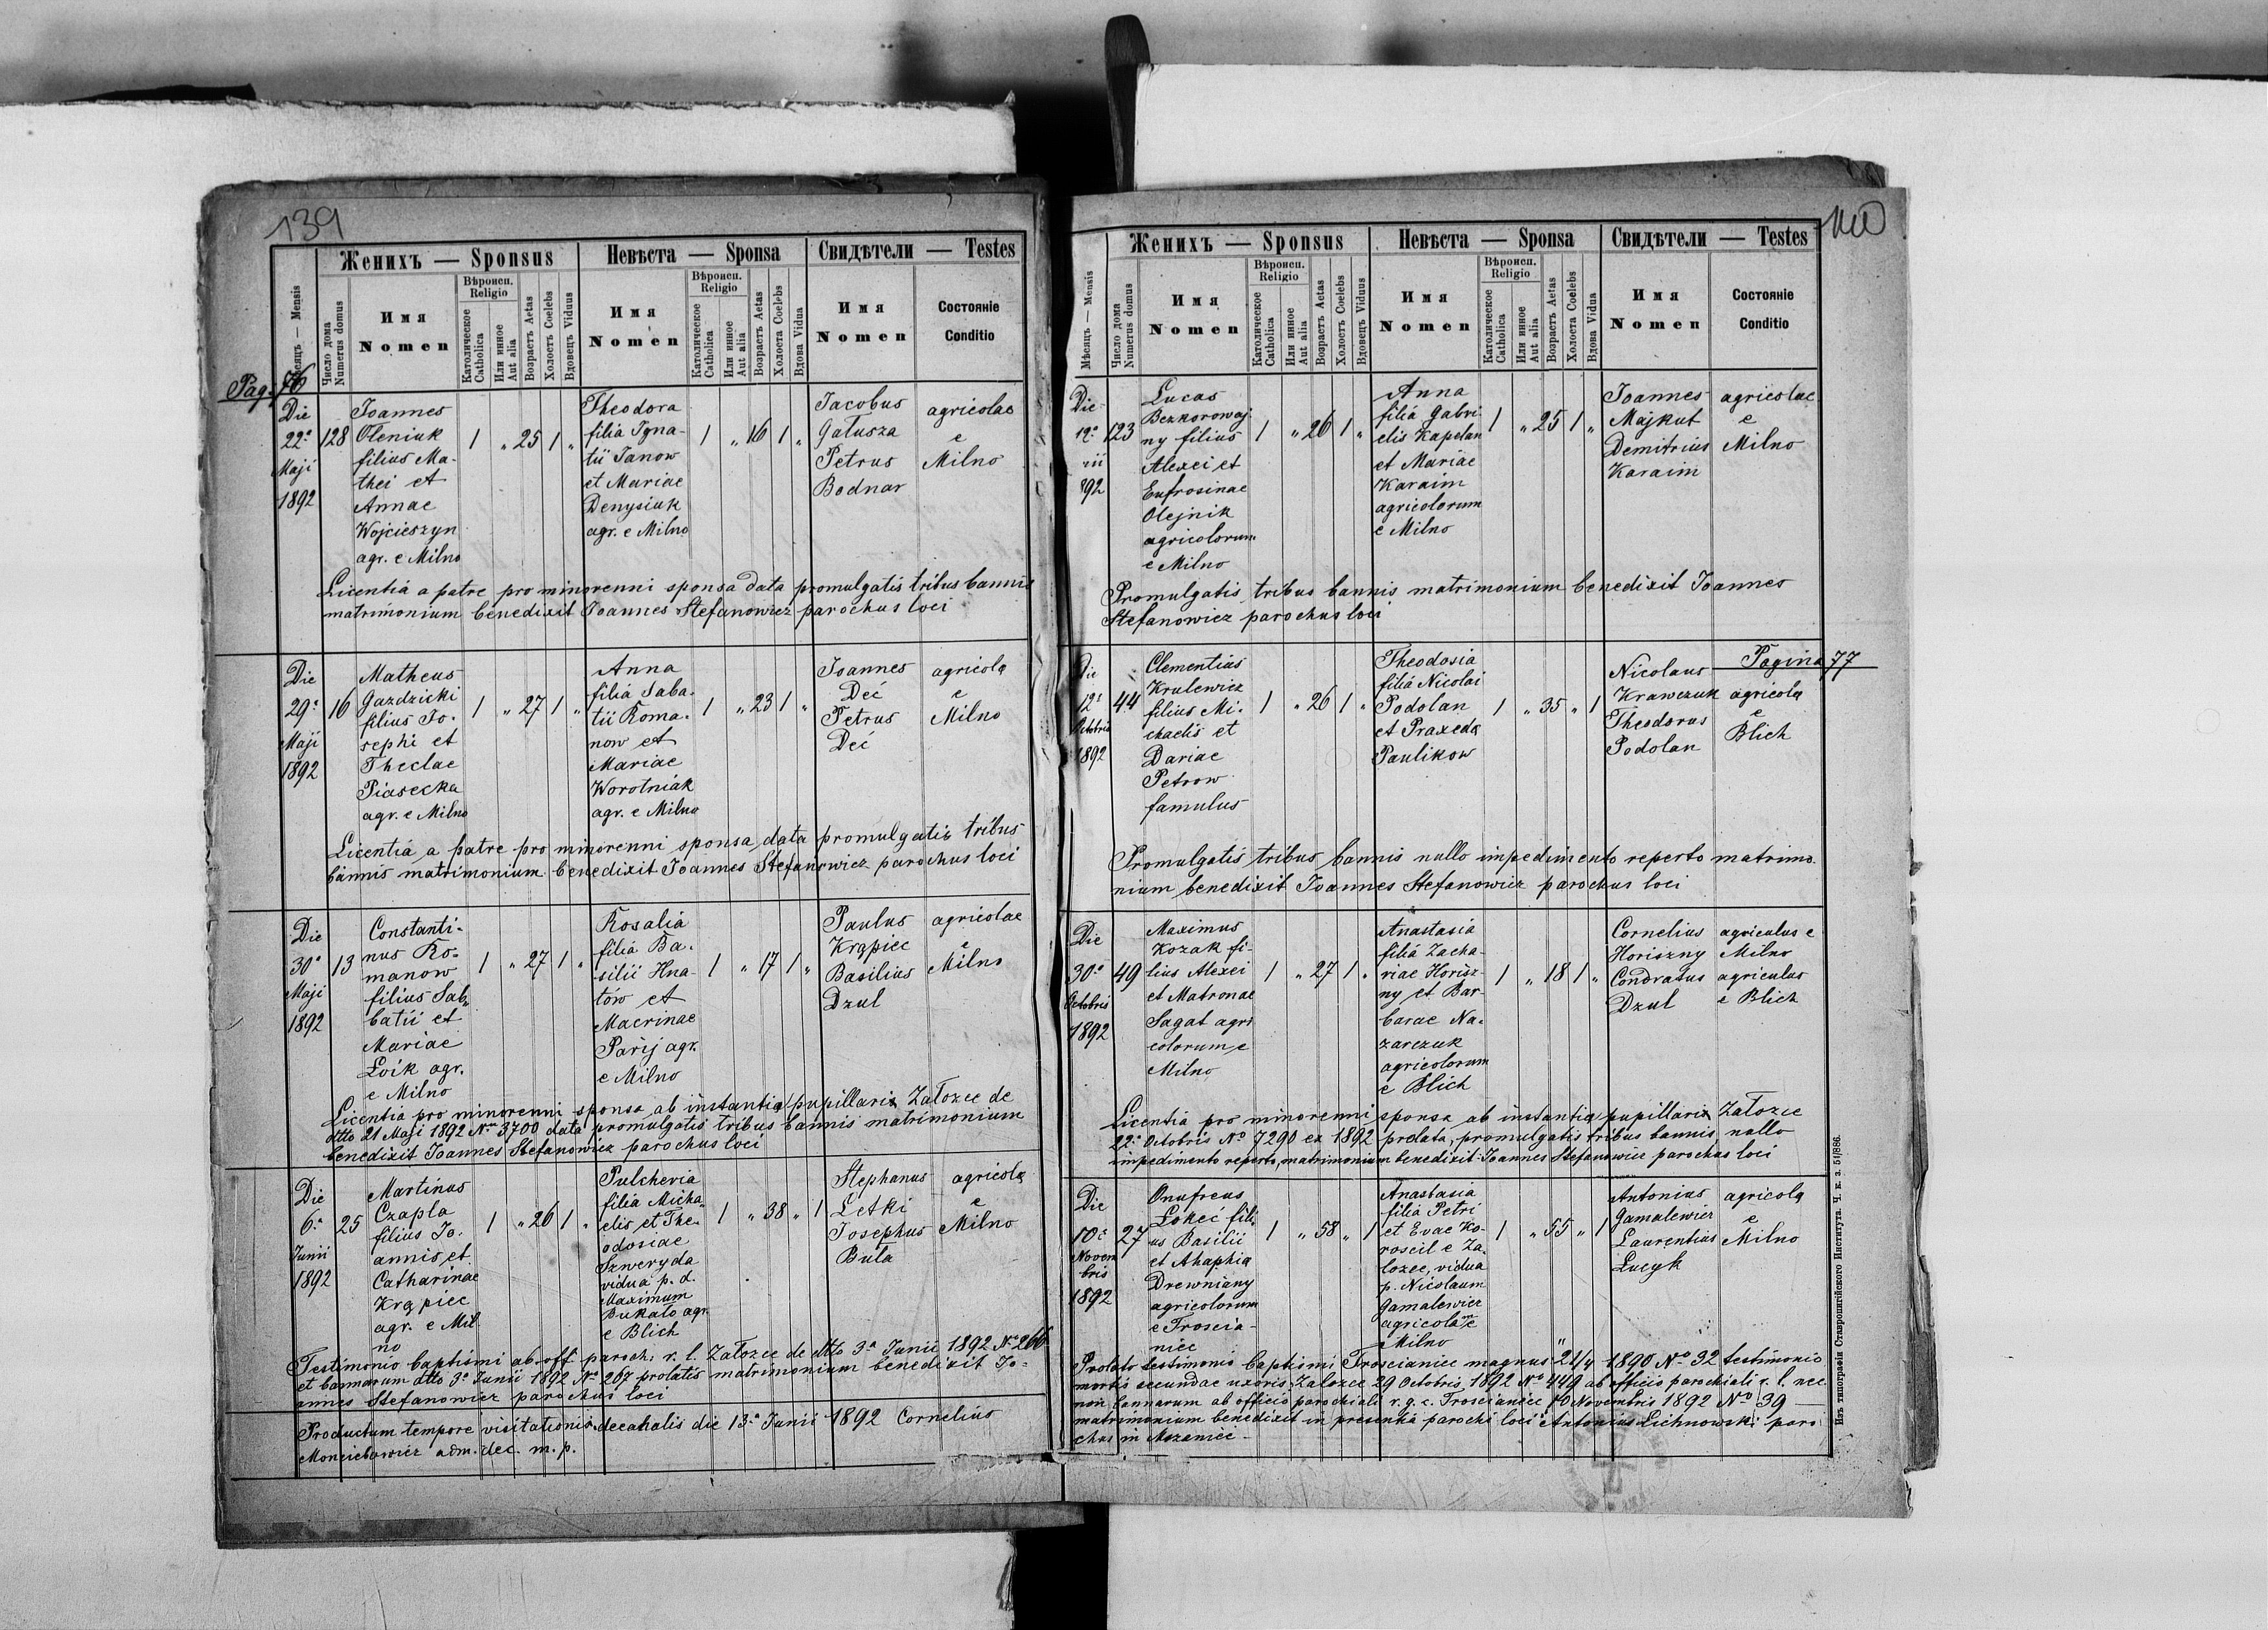 139
Pag. 76
Мѣсяцъ — Mensis
Число дома Numerus domus
Женихъ — Sponsus
Имя Nomen
Вѣроисп. Religio
Католическое Catholica
Или инное Aut alia
Возрастъ Aetas
Холостъ Coelebs
Вдовецъ Viduus
Невѣста — Sponsa
Имя Nomen
Вѣроисп. Religio
Католическое Catholica
Или инное Aut alia
Возрастъ Aetas
Холоста Coelebs
Вдова Vidua
Свидѣтели — Testes
Имя Nomen
Состояніе Conditio
Die
22ª
Maji
1892
128
Joannes
Oleniuk
filius Ma-
thei et
Annae
Wojcieszyn
agr. e Milno
1 „ 25 1 „
Theodora
filia Igna-
tii Janow
et Mariae
Denysiuk
agr. e Milno
1 „ 16 1 „
Jacobus
Gałusza
Petrus
Bodnar
agricolae
e
Milno
Licentiá a patre pro minorenni sponsa data promulgatis tribus bannis
matrimonium benedixit Joannes Stefanowicz parochus loci
Die
29ª
Maji
1892
16
Matheus
Gazdzicki
filius Jo-
sephi et
Theclae
Piasecka
agr. e Milno
1 „ 27 1 „
Anna
filia Saba-
tii Roma-
now et
Mariae
Worotniak
agr. e Milno
1 „ 23 1 „
Joannes
Deć
Petrus
Deć
agricola
e
Milno
Licentiá a patre pro minorenni sponsa data promulgatis tribus
bannis matrimonium benedixit Joannes Stefanowicz parochus loci
Die
30ª
Maji
1892
13
Constanti-
nus Ro-
manow
filius Sab-
batii et
Mariae
Loik agr.
e Milno
1 „ 27 1 „
Rosalia
filia Ba-
silii Hna-
tów et
Macrinae
Parij agr.
e Milno
1 „ 17 1 „
Paulus
Krąpiec
Basilius
Dzul
agricolae
e
Milno
Licentia pro minorenni sponsa ab instantia pupillari Załozce de
dtto 21 Maji 1892 Nro 3700 data promulgatis tribus bannis matrimonium
benedixit Joannes Stefanowicz parochus loci
Die
6ª
Junii
1892
25
Martinus
Czapla
filius Jo-
annis et
Catharinae
Krąpiec
agr. e Mil
no
1 „ 26 1 „
Pulcheria
filia Micha-
elis et The-
odosiae
Szweryda
vidua p. d.
Maximum
Bukato agr.
e Blich
1 „ 38 „ 1
Stephanus
Letki
Josephus
Buła
agricola
e
Milno
Testimonio baptismi ab off. paroch. r. l. Załozce de dtto 3ª Junii 1892 Nro 266
et bannorum dtto 3ª Junii 1892 Nº 207 prolatis matrimonium benedixit Jo-
annes Stefanowicz parochus loci
Productum tempore visitationis decanalis die 13ª Junii 1892 Cornelius
adm. dec. m. p.
140
Мѣсяцъ — Mensis
Число дома Numerus domus
Женихъ — Sponsus
Имя Nomen
Вѣроисп. Religio
Католическое Catholica
Или инное Aut alia
Возрастъ Aetas
Холостъ Coelebs
Вдовецъ Viduus
Невѣста — Sponsa
Имя Nomen
Вѣроисп. Religio
Католическое Catholica
Или инное Aut alia
Возрастъ Aetas
Холоста Coelebs
Вдова Vidua
Свидѣтели — Testes
Имя Nomen
Состояніе Conditio
Die
12ª
nii
892
123
Lucas
Bezkorowaj-
ny filius
Alexei et
Eufrosinae
Olejnik
agricolorum
e Milno
1 „ 26 1 „
Anna
filia Gabri-
elis Kapelan
et Mariae
Karaim
agricolorum
e Milno
1 „ 25 1 „
Joannes
Majkut
Demitrius
Karaim
agricolae
e
Milno
Promulgatis tribus bannis matrimonium benedixit Joannes
Stefanowicz parochus loci
Pagina 77
Die
12ª
Octobris
1892
44
Clementius
Krulewicz
filius Mi-
chaelis et
Dariae
Petrow
famulus
1 „ 26 1 „
Theodosia
filia Nicolai
Podolan
et Praxeda
Paulikow
1 „ 35 „ 1
Nicolaus
Krawczuk
Theodorus
Podolan
agricola
e
Blich
Promulgatis tribus bannis nullo impedimento reperto matrimo-
nium benedixit Joannes Stefanowicz parochus loci
Die
30ª
Octobris
1892
49
Maximus
Kozak fi-
lius Alexei
et Matronae
Sagat agri
colorum e
Milno
1 „ 27 1 „
Anastasia
filia Zacha-
riae Horisz-
ny et Bar-
barae Na-
zarczuk
agricolorum
e Blich
1 „ 18 1 „
Cornelius
Horiszny
Condratus
Dzul
agriculus e
Milno
agriculus
e Blich
Licentia pro minorenni sponsa ab instantia pupillari Załozce
22ª Octobris Nº 7290 ex 1892 prolata, promulgatis tribus bannis, nullo
impedimento reperto, matrimonium benedixit Joannes Stefanowicz parochus loci
Die
10ª
Novem
bris
1892
27
Onufreus
Lokeć fili-
us Basilii
et Ahaphia
Drewniany
agricolorum
e Troscia-
niec
1 „ 58 „ 1
Anastasia
filia Petri
et Evae Ko-
roscil e Za-
lozce, vidua
p. Nicolaum
Gamalewicz
agricolam e
Milno
1 „ 55 „ 1
Antonius
Gamalewicz
Laurentius
Lucyk
agricola
e
Milno
Prolato testimonio baptismi Troscianiec magnus 21/4 1890 Nº 32 testimonio
mortis secundae uxoris Załozce 29 Octobris 1892 Nº 449 ab officio parochiali r. l. nec
non bannarum ab officio parochiali r. g. c. Troscianiec 10 Novembris 1892 Nº 39 —
matrimonium benedixit in presentia parochi loci Antonius Lichnowski paro
chus in
Изъ типографіи Ставропигійского Института. Ч. к. з. 51/886.